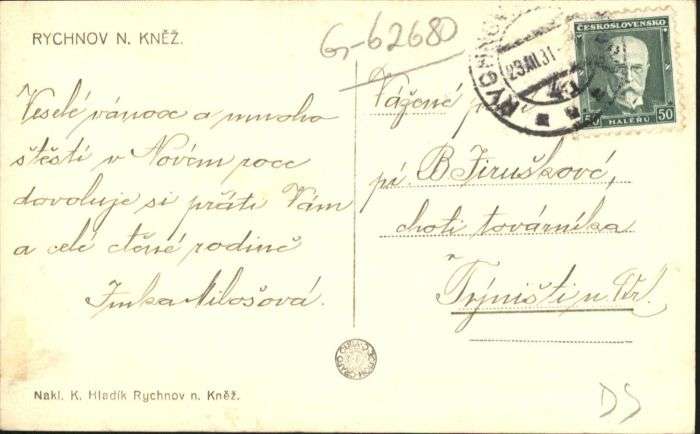 RYCHNOV N. KNĚŽ.
G-62680
Veselé vánoce a mnoho
štěstí v Novém roce
dovoluje si přáti Vám
a celé ctěné rodině
Inka Milošová.
Nakl. K. Hladík Rychnov n. Kněž.
RYCHNOV
23.XII.31
ČESKOSLOVENSKO
50 HALÉŘŮ 50
Vážené p
pí. B. Jiruškové,
choti továrníka
Týništi n. Orl.
DS